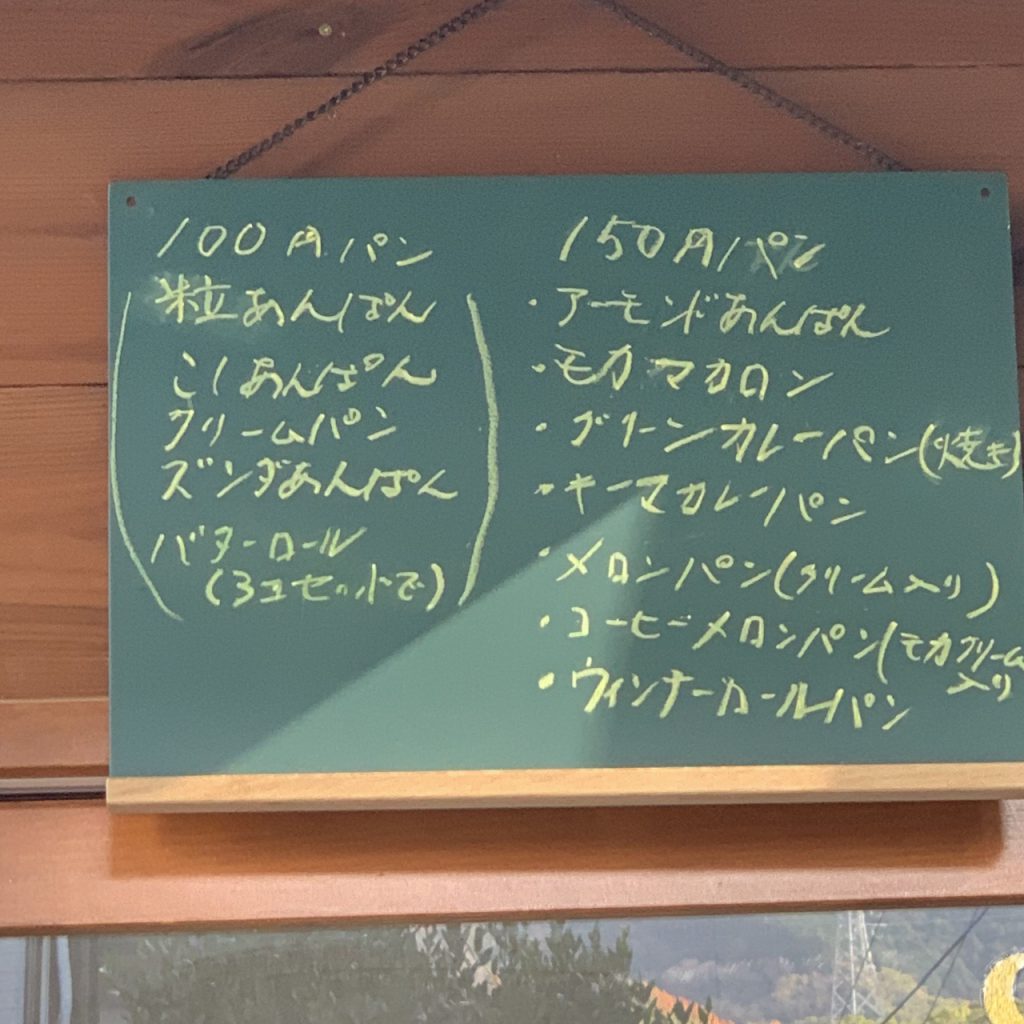 100円パン
粒あんぱん
こしあんぱん
クリームパン
ズンダあんぱん
バターロール
(3コセットで)
150円パン
・アーモンドあんぱん
・モカマカロン
・グリーンカレーパン(焼き)
・キーマカレーパン
・メロンパン(クリーム入り)
・コーヒーメロンパン(モカクリーム
入り
・ウィンナーロールパン